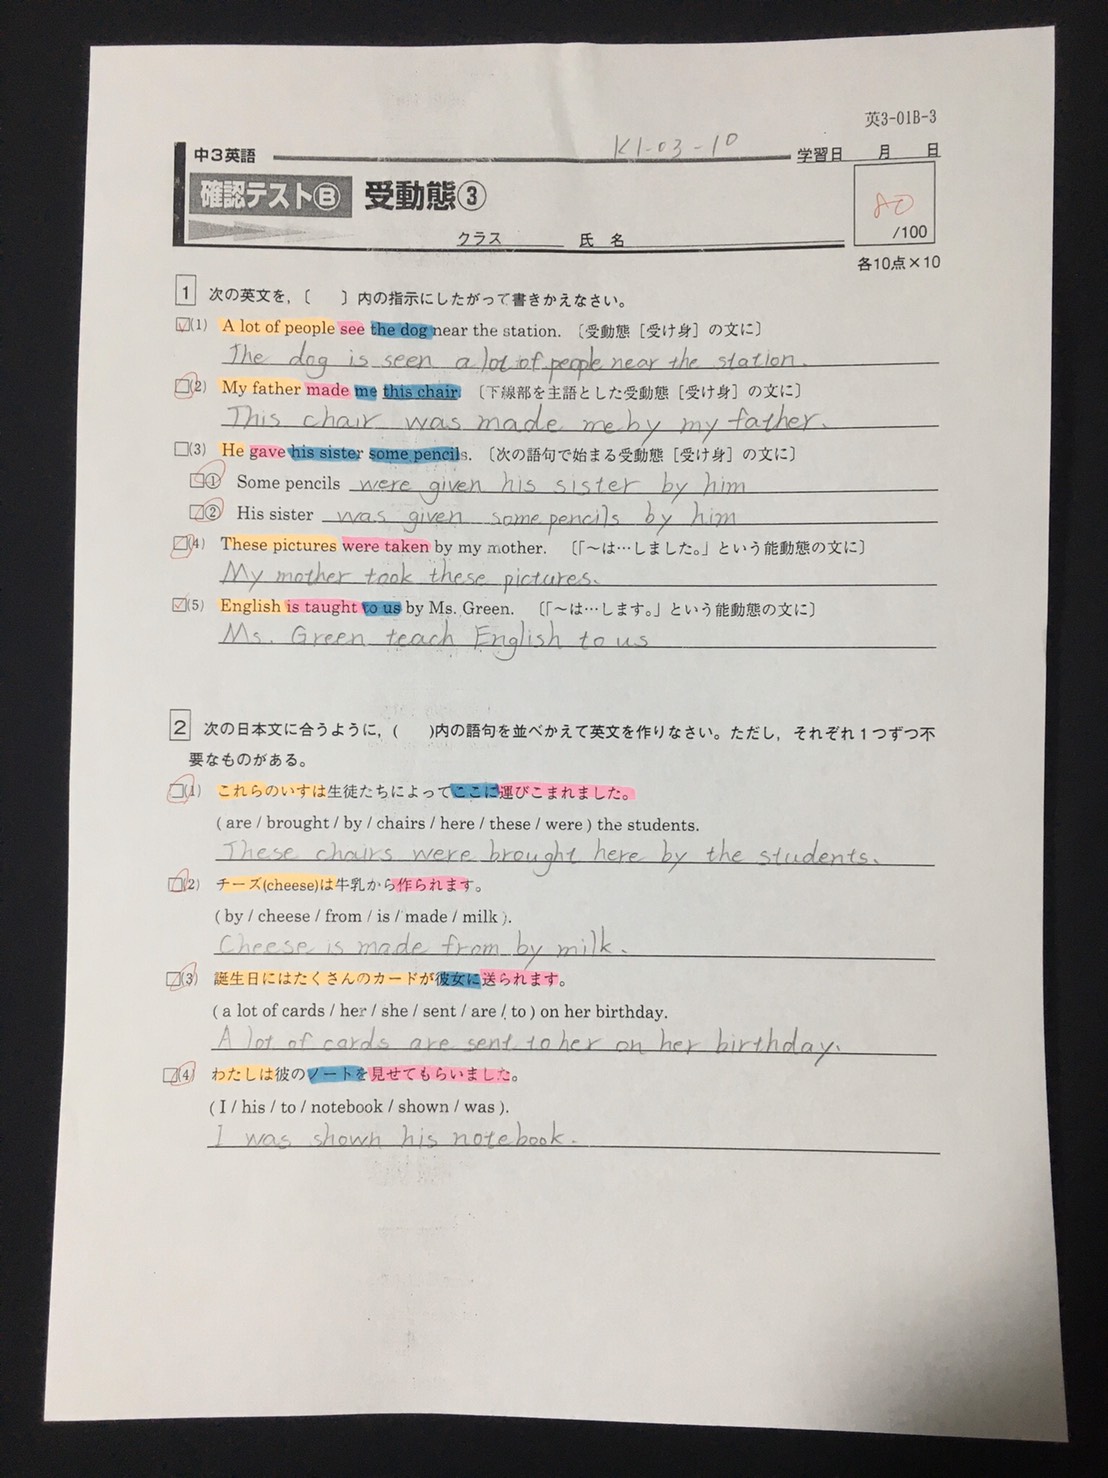 英3-01B-3
中3英語 K1-03-10 学習日 月 日
確認テストⒷ 受動態③
80
/100
クラス 氏 名
各10点×10
1 次の英文を，〔 〕内の指示にしたがって書きかえなさい。
(1) A lot of people see the dog near the station. 〔受動態［受け身］の文に〕
The dog is seen a lot of people near the station.
(2) My father made me this chair. 〔下線部を主語とした受動態［受け身］の文に〕
This chair was made me by my father.
(3) He gave his sister some pencils. 〔次の語句で始まる受動態［受け身］の文に〕
① Some pencils were given his sister by him
② His sister was given some pencils by him
(4) These pictures were taken by my mother. 〔「～は…しました。」という能動態の文に〕
My mother took these pictures.
(5) English is taught to us by Ms. Green. 〔「～は…します。」という能動態の文に〕
Ms. Green teach English to us
2 次の日本文に合うように，( )内の語句を並べかえて英文を作りなさい。ただし，それぞれ1つずつ不
要なものがある。
(1) これらのいすは生徒たちによってここに運びこまれました。
( are / brought / by / chairs / here / these / were ) the students.
These chairs were brought here by the students.
(2) チーズ(cheese)は牛乳から作られます。
( by / cheese / from / is / made / milk ).
Cheese is made from by milk.
(3) 誕生日にはたくさんのカードが彼女に送られます。
( a lot of cards / her / she / sent / are / to ) on her birthday.
A lot of cards are sent to her on her birthday.
(4) わたしは彼のノートを見せてもらいました。
( I / his / to / notebook / shown / was ).
I was shown his notebook.